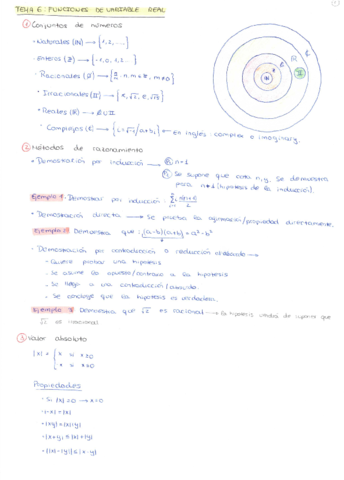 TEMA 6: FUNCIONES DE VARIABLE REAL
① Conjuntos de números
• Naturales (ℕ) → {1, 2, ...}
• Enteros (ℤ) → {-1, 0, 1, 2...}
• Racionales (ℚ) → { n, m ∈ ℤ, m≠0}
• Irracionales (𝕀) → {π, √2, e, √3}
• Reales (ℝ) → ℚ ∪ 𝕀
• Complejos (ℂ) → {i=√-1 / a+bi} ← en inglés: complex e imaginary.
ℕ ℤ ℚ ℝ ℂ
② Métodos de razonamiento
• Demostración por inducción → n=1
Se supone que cierto n, y se demuestra
para n+1 (hipótesis de la inducción).
Ejemplo 1. Demostrar por inducción:
• Demostración directa → Se prueba la afirmación/propiedad directamente.
Ejemplo Demuestra que: (a-b)(a+b) = a²-b²
• Demostración por contradicción o reducción al absurdo →
- Quiere probar una hipótesis
- Se asume lo opuesto/contrario a la hipótesis
- Se llega a una contradicción/absurdo.
- Se concluye que la hipótesis es verdadera.
Ejemplo Demuestra que √2 es racional → la hipótesis es suponer que
√2 es irracional
③ Valor absoluto
|x| = { x si x≥0
x si x≤0
Propiedades
- Si |x| = 0 → x=0
- |-x| = |x|
- |x·y| = |x||y|
- |x+y| ≤ |x|+|y|
- ||x|-|y|| ≤ |x-y|